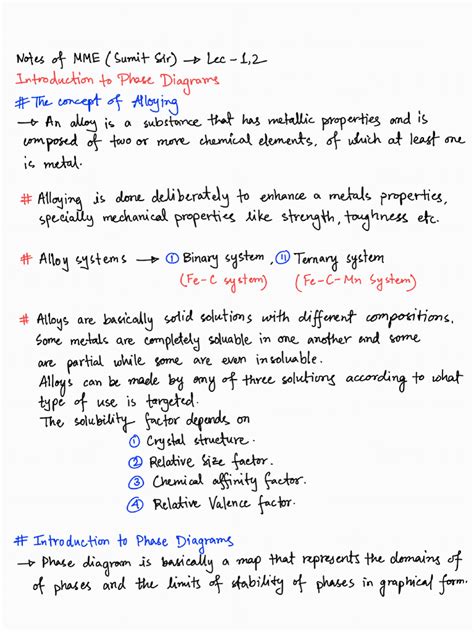 Notes of MME (Sumit Sir) → Lec - 1,2
Introduction to Phase Diagrams
# The concept of Alloying
→ An alloy is a substance that has metallic properties and is
composed of two or more chemical elements, of which at least one
is metal.
# Alloying is done deliberately to enhance a metals properties,
specially mechanical properties like strength, toughness etc.
# Alloy systems → ① Binary system, ⑪ Ternary system
(Fe-C system) (Fe-C-Mn System)
# Alloys are basically solid solutions with different compositions.
Some metals are completely soluable in one another and some
are partial while some are even insoluable.
Alloys can be made by any of three solutions according to what
type of use is targeted.
The solubility factor depends on
① Crystal structure.
② Relative Size factor.
③ Chemical affinity factor.
④ Relative Valence factor.
# Introduction to Phase Diagrams
→ Phase diagram is basically a map that represents the domains of
of phases and the limits of stability of phases in graphical form.